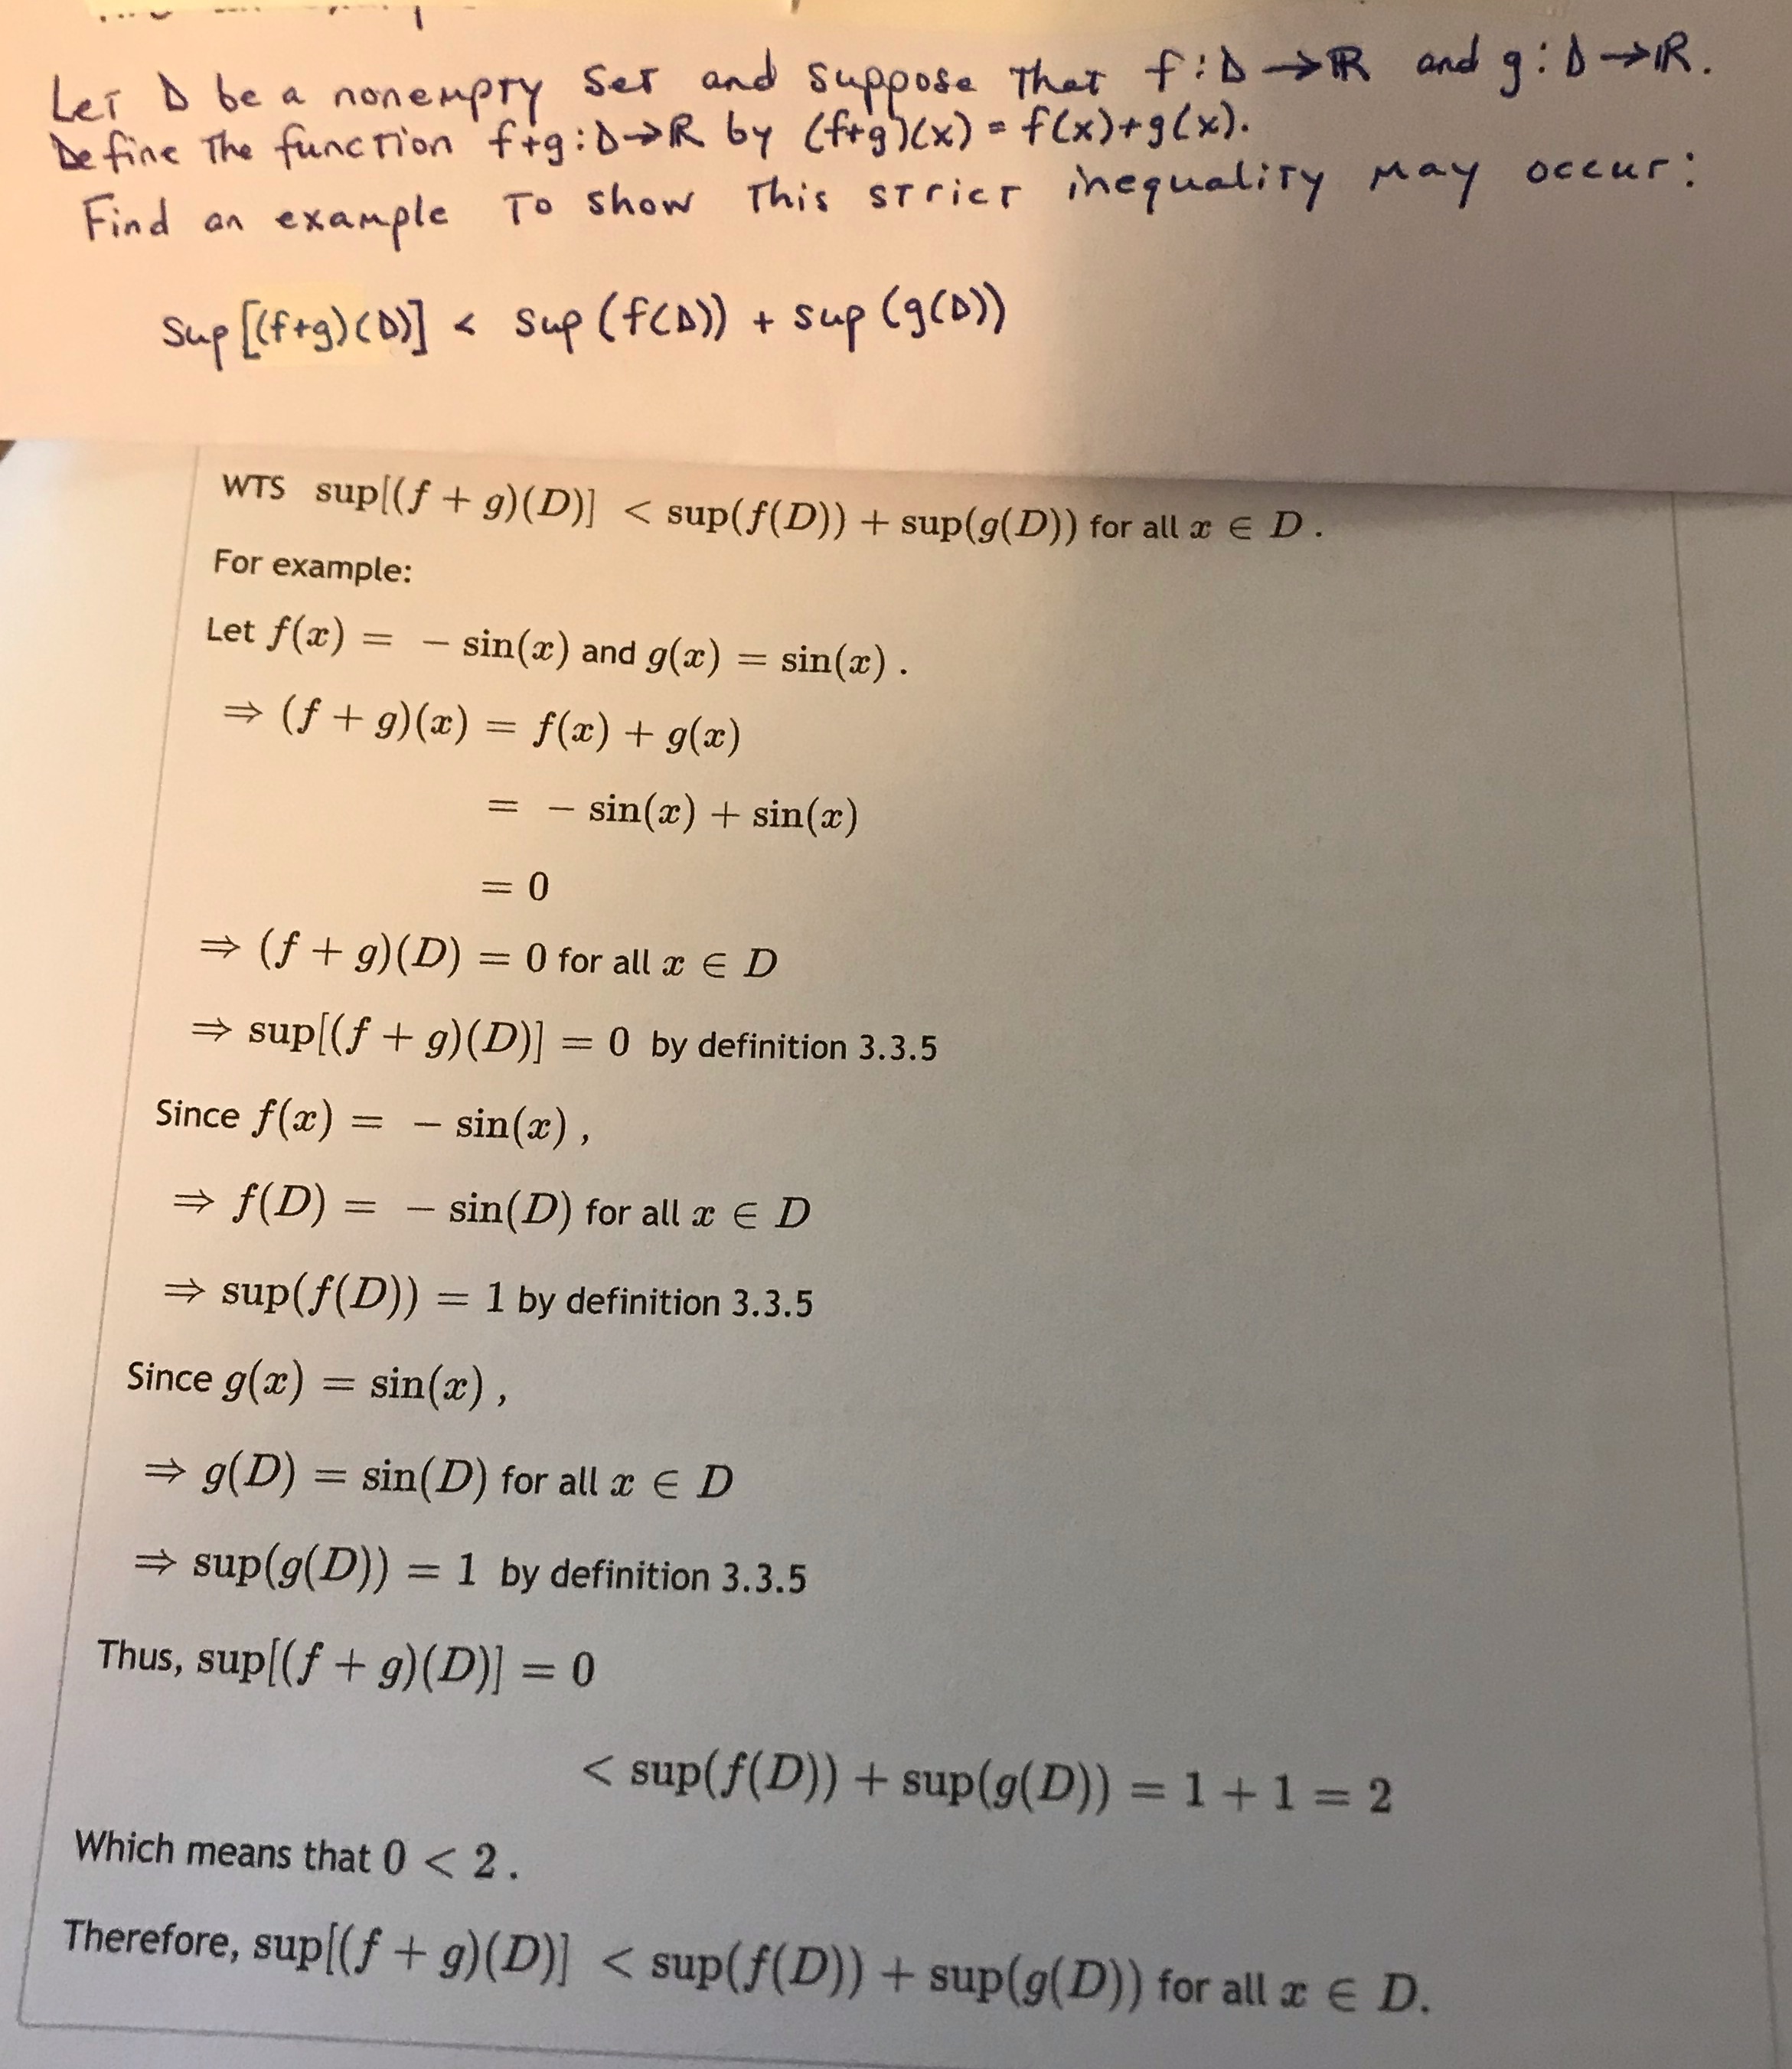 Let D be a nonempty set and suppose that f:D→ℝ and g:D→ℝ.
Define the function f+g:D→ℝ by (f+g)(x) = f(x)+g(x).
Find an example to show this strict inequality may occur:
Sup[(f+g)(D)] < sup(f(D)) + sup(g(D))
WTS sup[(f + g)(D)] < sup(f(D)) + sup(g(D)) for all x ∈ D .
For example:
Let f(x) = − sin(x) and g(x) = sin(x) .
⇒ (f + g)(x) = f(x) + g(x)
= − sin(x) + sin(x)
= 0
⇒ (f + g)(D) = 0 for all x ∈ D
⇒ sup[(f + g)(D)] = 0 by definition 3.3.5
Since f(x) = − sin(x) ,
⇒ f(D) = − sin(D) for all x ∈ D
⇒ sup(f(D)) = 1 by definition 3.3.5
Since g(x) = sin(x) ,
⇒ g(D) = sin(D) for all x ∈ D
⇒ sup(g(D)) = 1 by definition 3.3.5
Thus, sup[(f + g)(D)] = 0
< sup(f(D)) + sup(g(D)) = 1 + 1 = 2
Which means that 0 < 2 .
Therefore, sup[(f + g)(D)] < sup(f(D)) + sup(g(D)) for all x ∈ D.